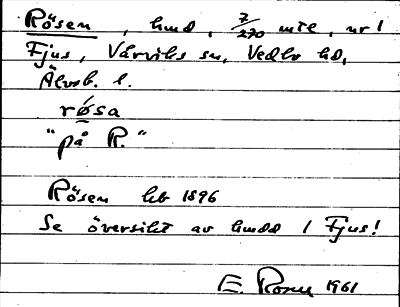 Rösen, hmd, 7/270 mtl, nr 1
Fjus, Värviks sn, Vedbo hd,
Älvsb. l.
røsa
"på R."
Rösen hb 1896
Se översikt av hmdd / Fjus!
E. Rosell 1961